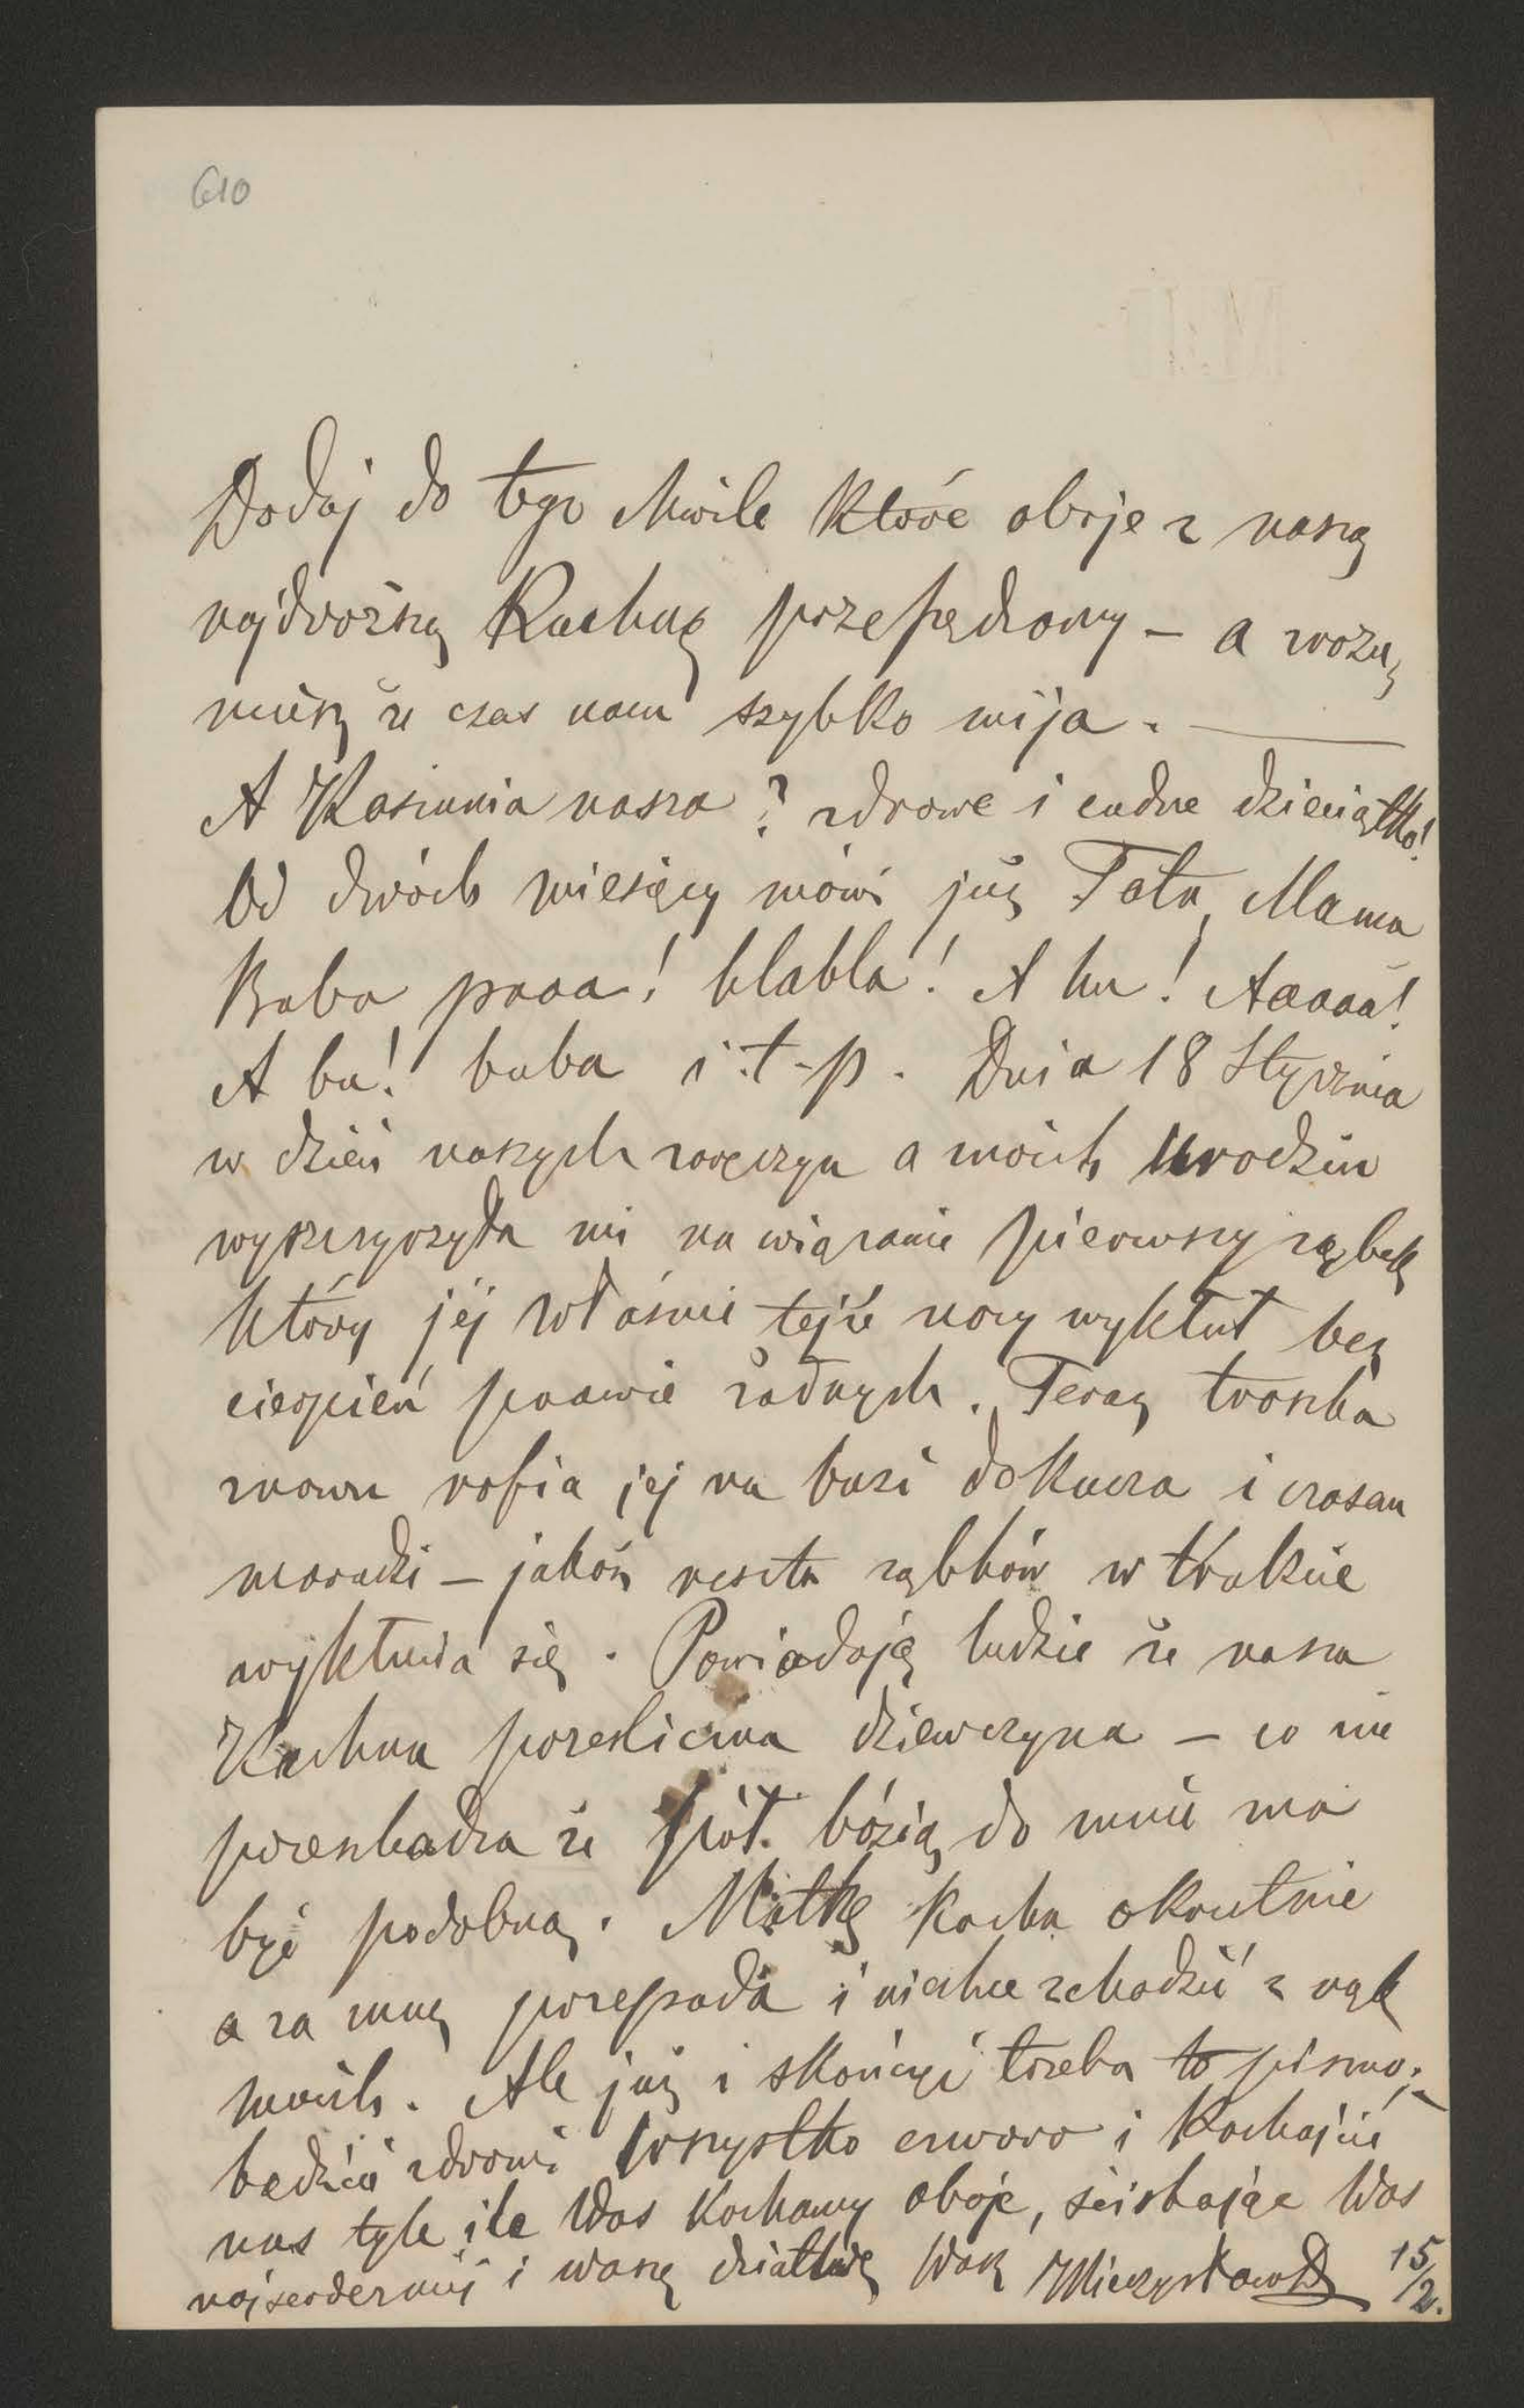 610
Dodaj do tego chwile które oboje z naszą
najdroższą Kachną przepędzamy – a rozu
miesz że czas nam szybko mija.
A Kasiunia nasza? zdrowe i cudne dzieciątko!
Od dwóch miesięcy mówi już Tata, Mama
Baba paaa! blabla! A hu! Aaaaa!
A bu! buba i.t.p. Dnia 18 Stycznia
w dzień naszych zaręczyn a moich urodzin
wyszczyrzyła mi na wiązanie pierwszy ząbek
który jej właśnie tejże nocy wykłuł bez
cierpień prawie żadnych. Teraz troszka
znowu robia jej na buzi dokucza i czasem
marudzi – jakoś reszta ząbków w trakcie
wykłucia się. Powiadają ludzie że nasza
Kachna prześliczna dziewczyna – co nie
przeszkadza że pół bózią do mnie ma
być podobną. Matkę kocha okrutnie
a za mną przepada i niechce schodzić z rąk
moich. Ale już i skończyć trzeba to pismo;
bądźcie zdrowi wszystko czworo i kochajcie
nas tyle ile Was kochamy oboje, ściskając Was
najserdeczniej i waszą dziatwę Wasz Mieczysław 15/2.